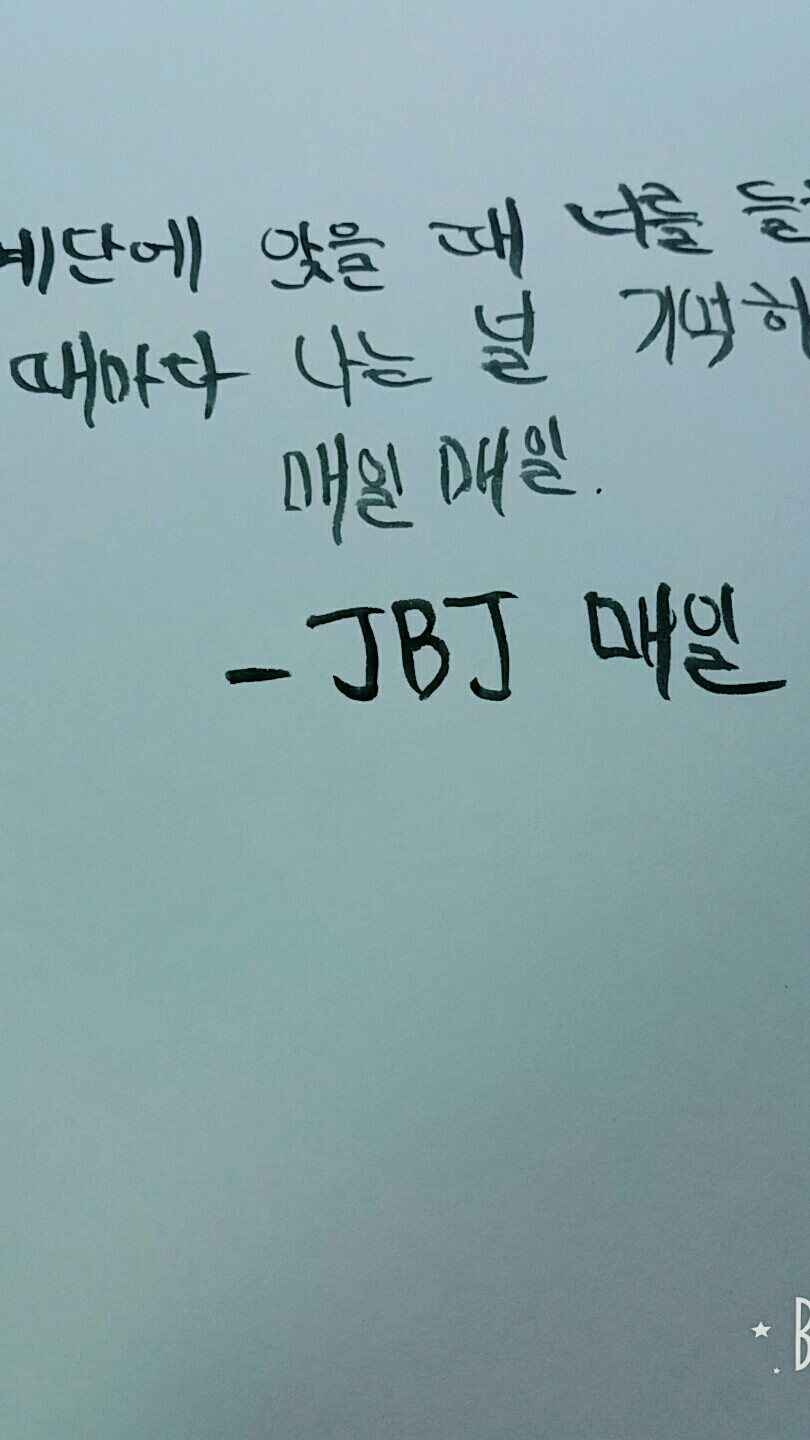 계단에 앉을 때 너를
때마다 나는 널
매일 매일.
- JBJ 매일